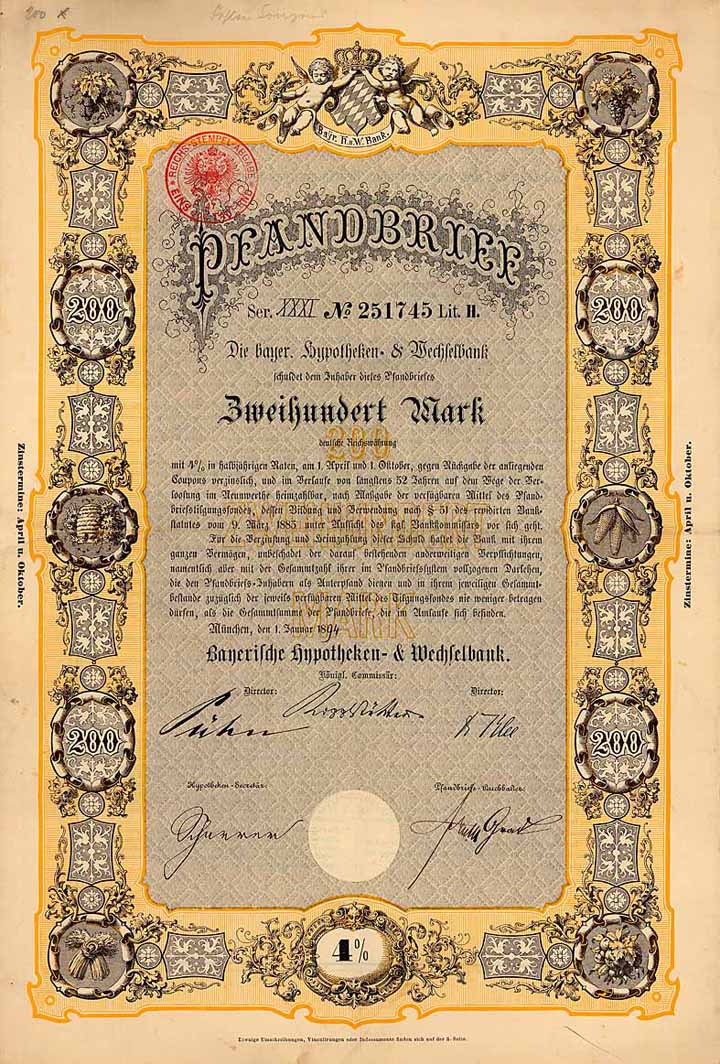 200
Bayr. H. u. W. Bank.
REICHS-STEMPEL-ABGABE
PFANDBRIEF
Ser. XXXI № 251745 Lit. H.
Die bayer. Hypotheken- & Wechselbank
schuldet dem Inhaber dieses Pfandbriefes
Zweihundert Mark
200
deutsche Reichswährung
mit 4% in halbjährigen Raten, am 1. April und 1. Oktober, gegen Rückgabe der anliegenden
Coupons verzinslich, und im Verlaufe von längstens 52 Jahren auf dem Wege der Ver-
loosung im Nennwerthe heimzahlbar, nach Maßgabe der verfügbaren Mittel des Pfand-
briefstilgungsfondes, dessen Bildung und Verwendung nach § 51 des revidirten Bank-
statutes vom 9. März 1885 unter Aufsicht des kgl. Bankkommissärs vor sich geht.
Für die Verzinsung und Heimzahlung dieser Schuld haftet die Bank mit ihrem
ganzen Vermögen, unbeschadet der darauf bestehenden anderweitigen Verpflichtungen,
namentlich aber mit der Gesammtzahl ihrer im Pfandbriefsystem vollzogenen Darlehen,
die den Pfandbriefs-Inhabern als Unterpfand dienen und in ihrem jeweiligen Gesammt-
bestande zuzüglich der jeweils verfügbaren Mittel des Tilgungsfondes nie weniger betragen
dürfen, als die Gesammtsumme der Pfandbriefe, die im Umlaufe sich befinden.
MARK
München, den 1. Januar 1894
Bayerische Hypotheken- & Wechselbank.
Königl. Commissär:
Director:
Director:
Hypotheken-Secretär:
Pfandbriefs-Buchhalter:
200
200
200
200
4%
Zinstermine: April u. Oktober.
Zinstermine: April u. Oktober.
Etwaige Umschreibungen, Vinculirungen oder Indossamente finden sich auf der 4. Seite.